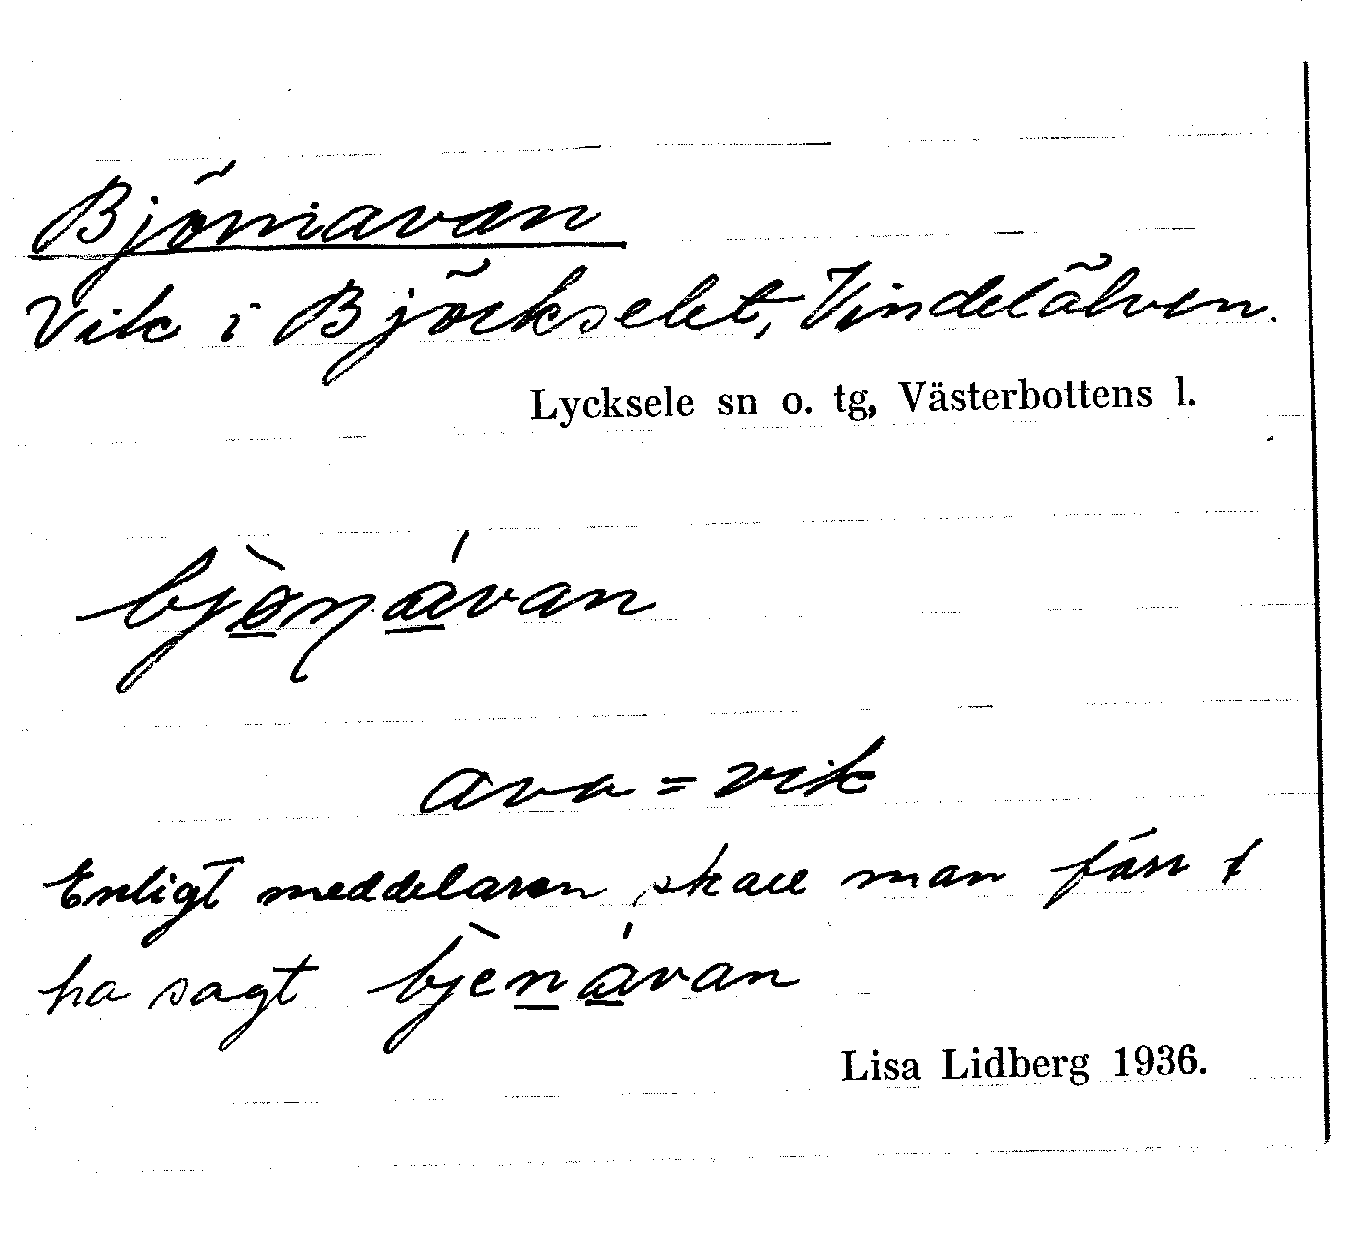 Björnavan
Vik i Björkselet, Vindelälven.
Lycksele sn o. tg, Västerbottens l.
bjö̀ṇávan
ava = vik
Enligt meddelaren skall man förr
ha sagt bjènávan
Lisa Lidberg 1936.